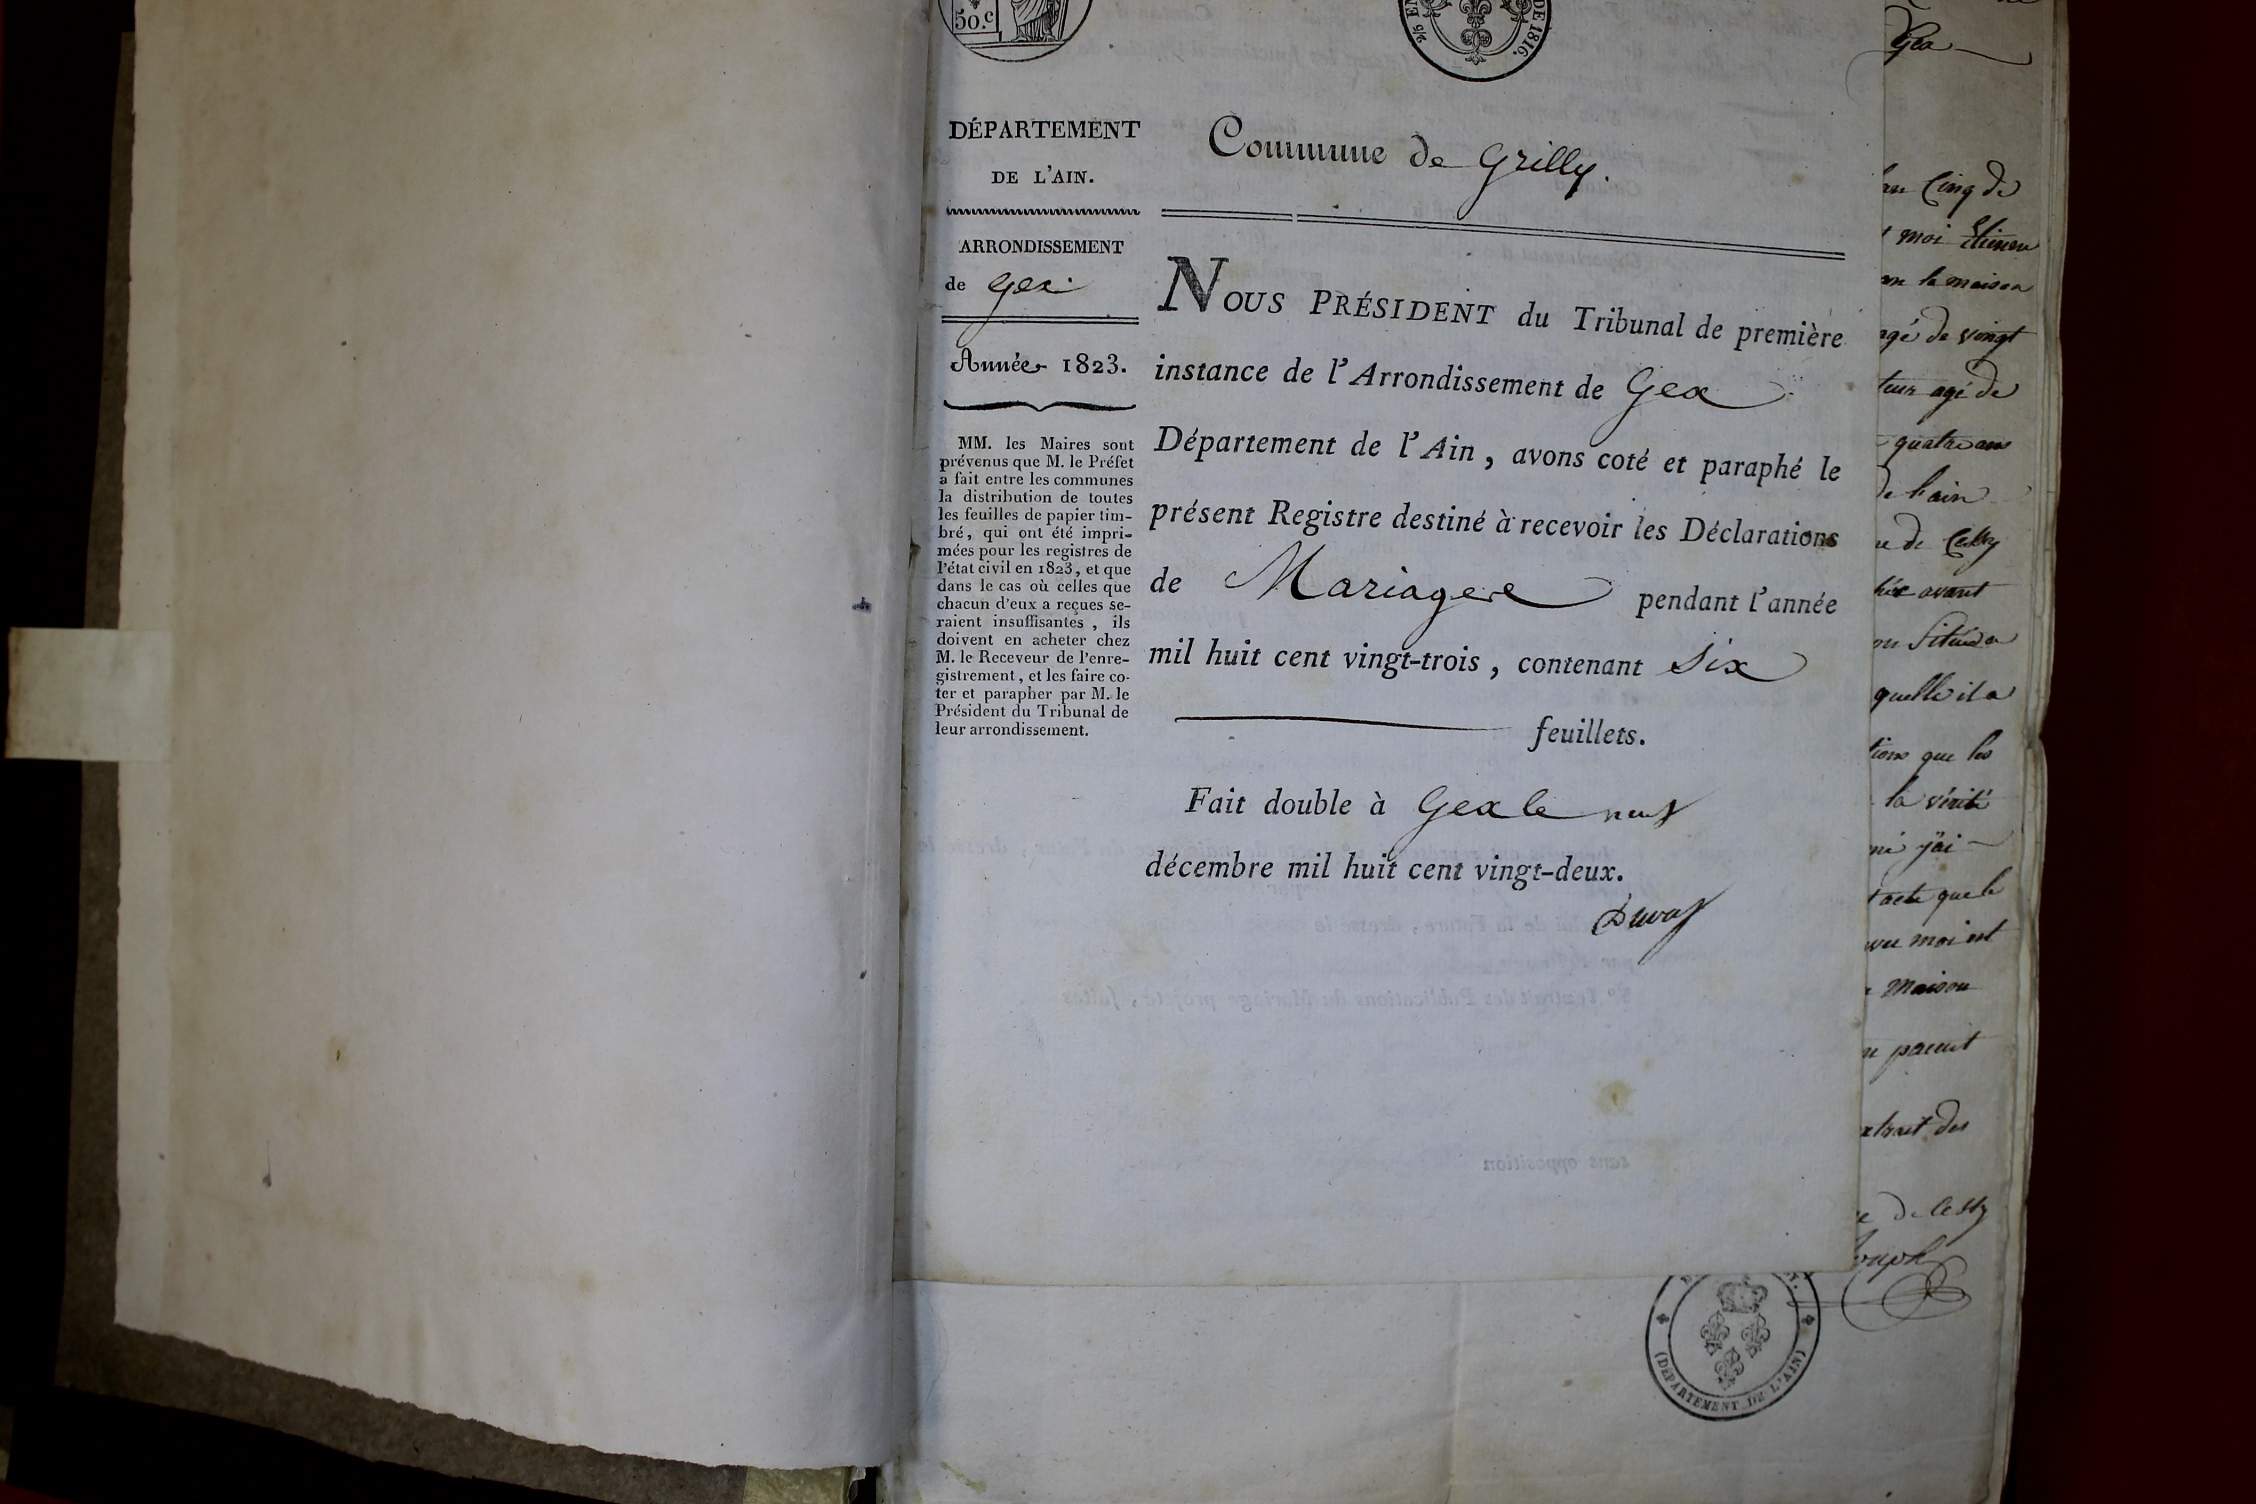 50.c
DE 1816.
DÉPARTEMENT
DE L'AIN.
ARRONDISSEMENT
de Gex
Année 1823.
MM. les Maires sont
prévenus que M. le Préfet
a fait entre les communes
la distribution de toutes
les feuilles de papier tim-
bré, qui ont été impri-
mées pour les registres de
l'état civil en 1823, et que
dans le cas où celles que
chacun d'eux a reçues se-
raient insuffisantes, ils
doivent en acheter chez
M. le Receveur de l'enre-
gistrement, et les faire co-
ter et parapher par M. le
Président du Tribunal de
leur arrondissement.
Commune de Grilly.
NOUS PRÉSIDENT du Tribunal de première
instance de l'Arrondissement de Gex
Département de l'Ain, avons coté et paraphé le
présent Registre destiné à recevoir les Déclarations
de Mariages pendant l'année
mil huit cent vingt-trois, contenant Six
feuillets.
Fait double à Gex le neuf
décembre mil huit cent vingt-deux.
Gex
Cinq de
moi Etienne
la maison
agé de vingt
teur agé de
quatre ans
de l'ain
de Cessy
avant
Située
quelle il a
tions que les
la vérité
j'ai
acte que le
moi est
Maison
extrait des
de Cessy
(DÉPARTEMENT DE L'AIN)